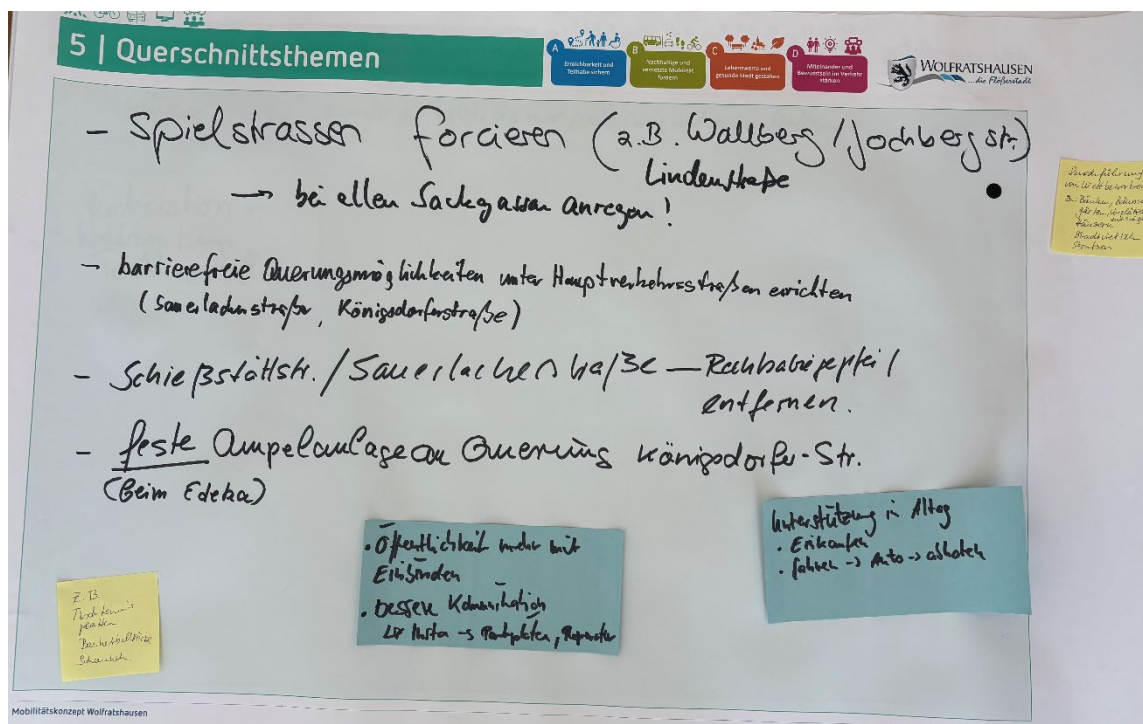 5 | Querschnittsthemen
A
Erreichbarkeit und
Teilhabe sichern
B
Nachhaltige und
vernetzte Mobilität
fördern
C
Lebenswerte und
gesunde Stadt gestalten
D
Miteinander und
Bewusstsein im Verkehr
stärken
WOLFRATSHAUSEN
...die Flößerstadt
- Spielstrassen forcieren (z.B. Wallberg/Jochbergstr.)
Lindenstraße
→ bei allen Sackgassen anregen!
- barrierefreie Querungsmöglichkeiten unter Hauptverkehrsstraßen errichten
(Sauerlacherstraße, Königsdorferstraße)
- Schießstättstr./Sauerlacherstraße —
entfernen.
- feste Ampelanlage an Querung Königsdorfer-Str.
(Beim Edeka)
Durchführung
von Wettbewerben
z.B.
Häusern
Stadtvierteln
Straßen
• Öffentlichkeit mehr mit
Einbinden
• bessere Kommunikation
↳ Insta →
Unterstützung in Alltag
• Einkaufen
• fahren → Auto → abholen
z.B.
Tischtennis
platten
Basketballkörbe
Schach
Mobilitätskonzept Wolfratshausen